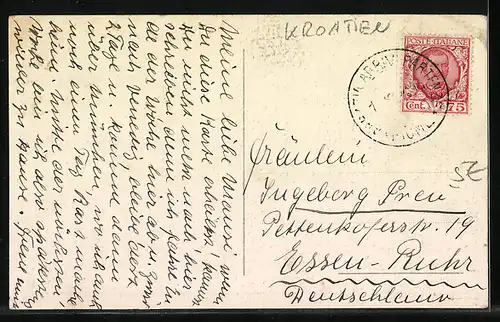 KROATIEN
POSTE ITALIANE
Cent. 75
Meine liebe Mausi, wenn
Du diese Karte erhältst, kannst
Du nicht mehr nach hier
schreiben, denn ich fahre
der Woche hier ab u. zwar
nach Venedig, bleibe dort
2 Tage u. komme dann
über München, wo ich auch
noch einen Tag Rast mache
Mitte der nächsten
Woche bin ich also spätestens
wieder zu Hause.
Fräulein
Ingeborg Preu
Pettenkoferstr. 19
Essen-Ruhr
Deutschland